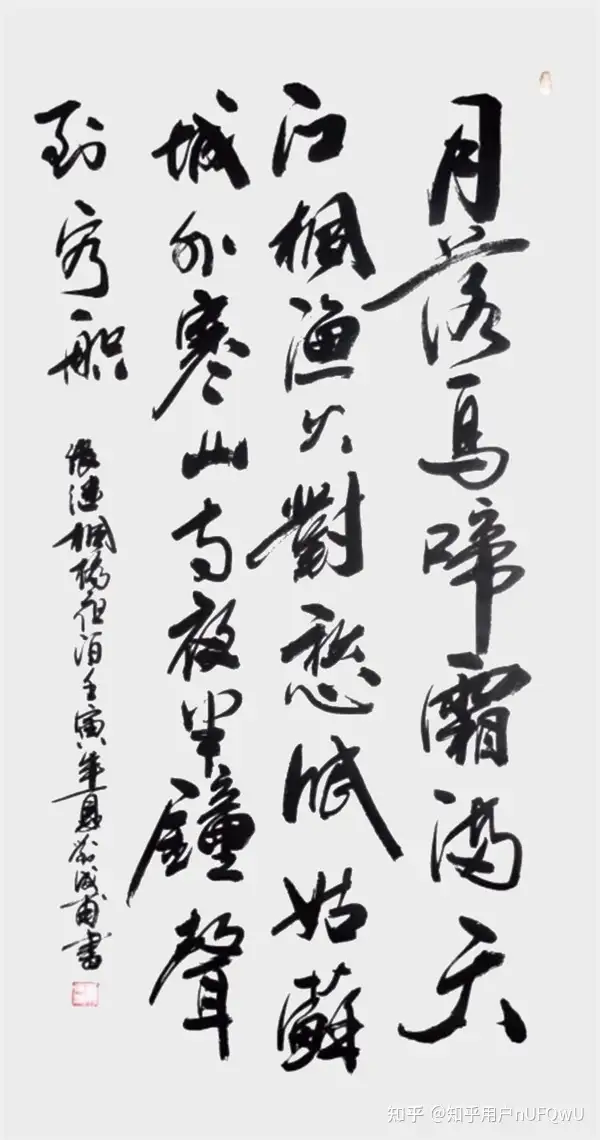 月落烏啼霜滿天
江楓漁火對愁眠姑蘇
城外寒山寺夜半鐘聲
到客船
張継楓橋夜泊壬寅年夏書
知乎 @知乎用户nUFQwU